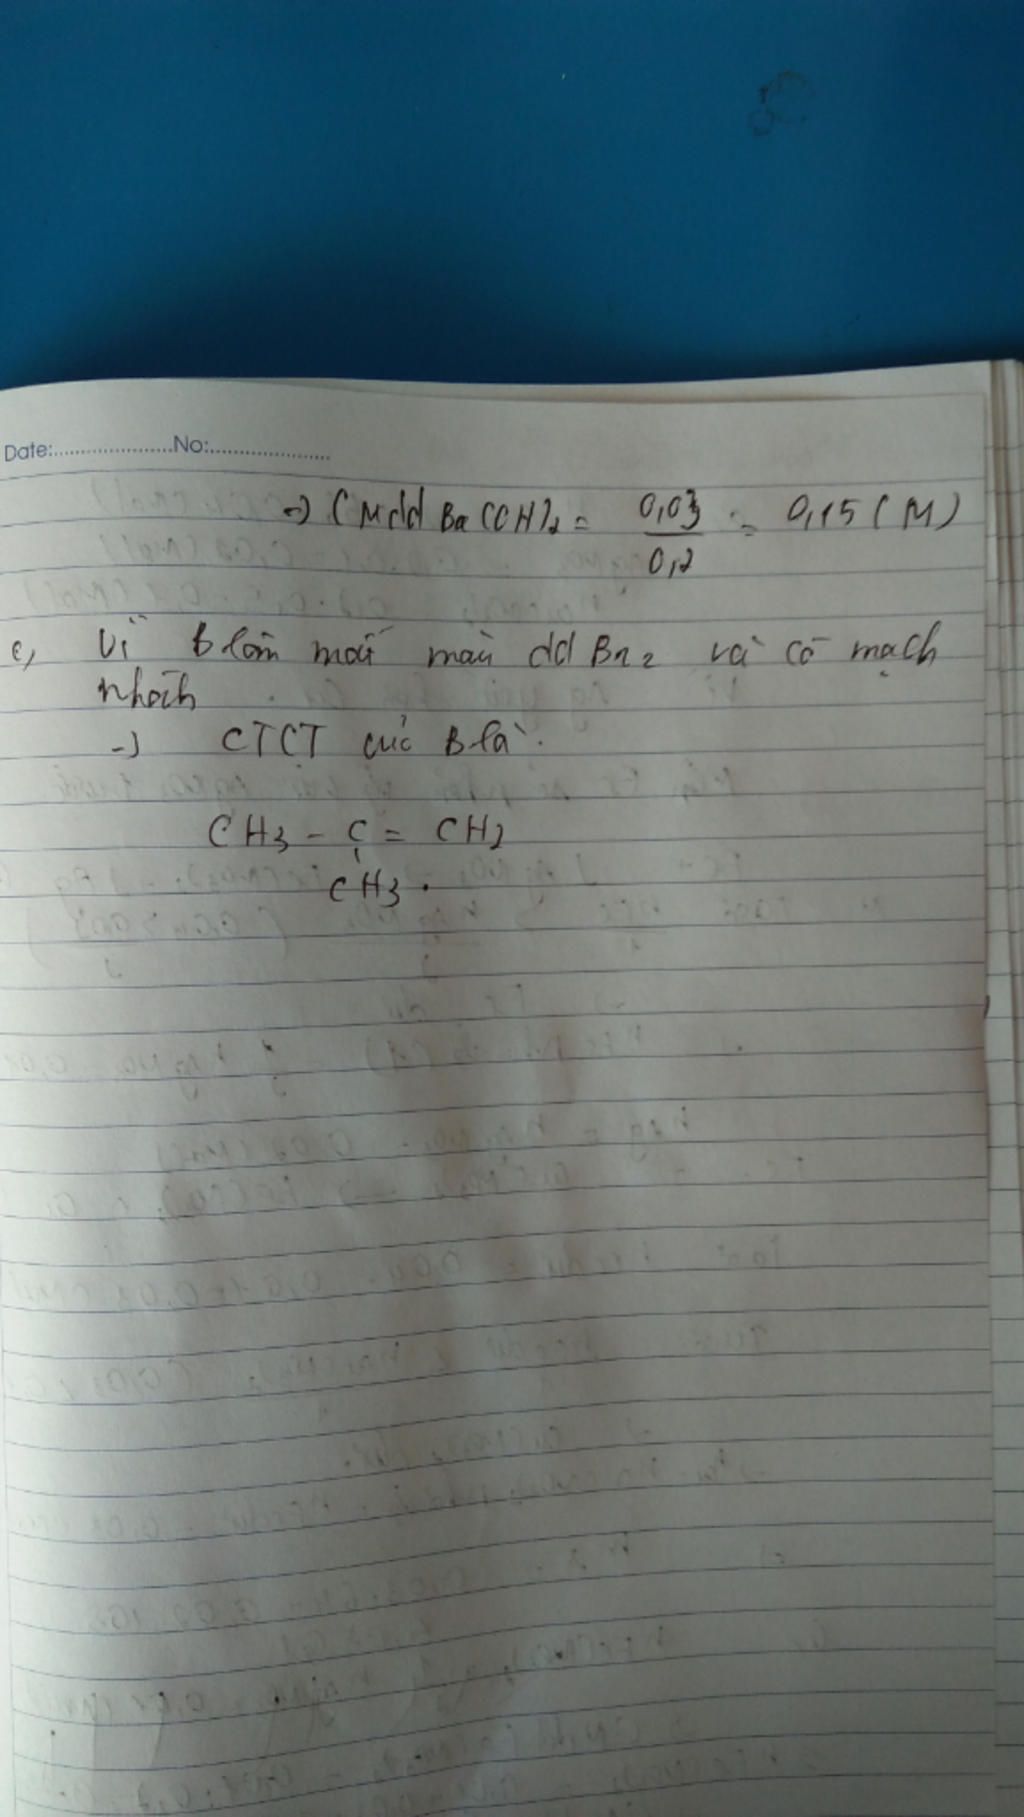 Date:....................No:....................
=> CM dd Ba(OH)2 = 0,03 / 0,2 = 0,15 (M)
c, Vì B làm mất màu dd Br2 và có mạch
nhánh
-> CTCT của B là:
CH3 - C = CH2
CH3.